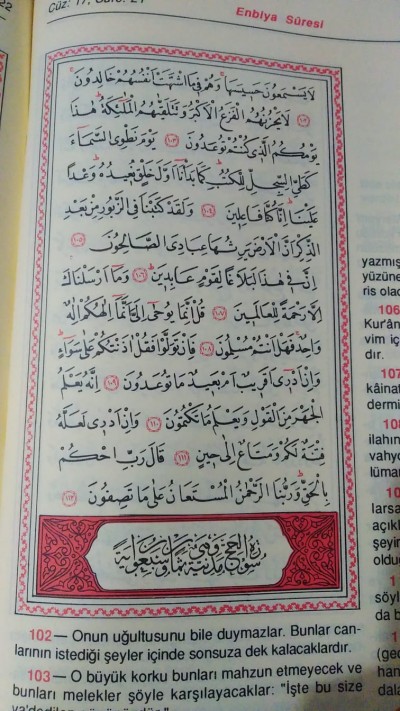 22
Cüz: 17, Sûre: 21
Enbiya Sûresi
لَا يَسْمَعُونَ حَسِيسَهَا وَهُمْ فِي مَا اشْتَهَتْ أَنْفُسُهُمْ خَالِدُونَ
﴿١٠٢﴾ لَا يَحْزُنُهُمُ الْفَزَعُ الْأَكْبَرُ وَتَتَلَقَّيهُمُ الْمَلٰئِكَةُ هٰذَا
يَوْمُكُمُ الَّذِي كُنْتُمْ تُوعَدُونَ ﴿١٠٣﴾ يَوْمَ نَطْوِي السَّمَاءَ
كَطَيِّ السِّجِلِّ لِلْكُتُبِ كَمَا بَدَأْنَا أَوَّلَ خَلْقٍ نُعِيدُهُ وَعْدًا
عَلَيْنَا إِنَّا كُنَّا فَاعِلِينَ ﴿١٠٤﴾ وَلَقَدْ كَتَبْنَا فِي الزَّبُورِ مِنْ بَعْدِ
الذِّكْرِ أَنَّ الْأَرْضَ يَرِثُهَا عِبَادِيَ الصَّالِحُونَ ﴿١٠٥﴾
إِنَّ فِي هٰذَا لَبَلَاغًا لِقَوْمٍ عَابِدِينَ ﴿١٠٦﴾ وَمَا أَرْسَلْنَاكَ
إِلَّا رَحْمَةً لِلْعَالَمِينَ ﴿١٠٧﴾ قُلْ إِنَّمَا يُوحٰى إِلَيَّ أَنَّمَا إِلٰهُكُمْ إِلٰهٌ
وَاحِدٌ فَهَلْ أَنْتُمْ مُسْلِمُونَ ﴿١٠٨﴾ فَإِنْ تَوَلَّوْا فَقُلْ آذَنْتُكُمْ عَلٰى سَوَاءٍ
وَإِنْ أَدْرِي أَقَرِيبٌ أَمْ بَعِيدٌ مَا تُوعَدُونَ ﴿١٠٩﴾ إِنَّهُ يَعْلَمُ
الْجَهْرَ مِنَ الْقَوْلِ وَيَعْلَمُ مَا تَكْتُمُونَ ﴿١١٠﴾ وَإِنْ أَدْرِي لَعَلَّهُ
فِتْنَةٌ لَكُمْ وَمَتَاعٌ إِلٰى حِينٍ ﴿١١١﴾ قَالَ رَبِّ احْكُمْ
بِالْحَقِّ وَرَبُّنَا الرَّحْمٰنُ الْمُسْتَعَانُ عَلٰى مَا تَصِفُونَ ﴿١١٢﴾
سُورَةُ الْحَجِّ مَدَنِيَّةٌ وَهِيَ ثَمَانٍ وَسَبْعُونَ آيَةً
102 — Onun uğultusunu bile duymazlar. Bunlar can-
larının istediği şeyler içinde sonsuza dek kalacaklardır.
103 — O büyük korku bunları mahzun etmeyecek ve
bunları melekler şöyle karşılayacaklar: "İşte bu size
yazmış
yüzüne
ris olac
106
Kur'ân
vim iç
dır.
107
kâinat
dermi
108
ilahın
vahyo
lüman
10
larsa
açıkl
şeyin
olduğ
1
söyl
da b
1
(geç
hand
dala